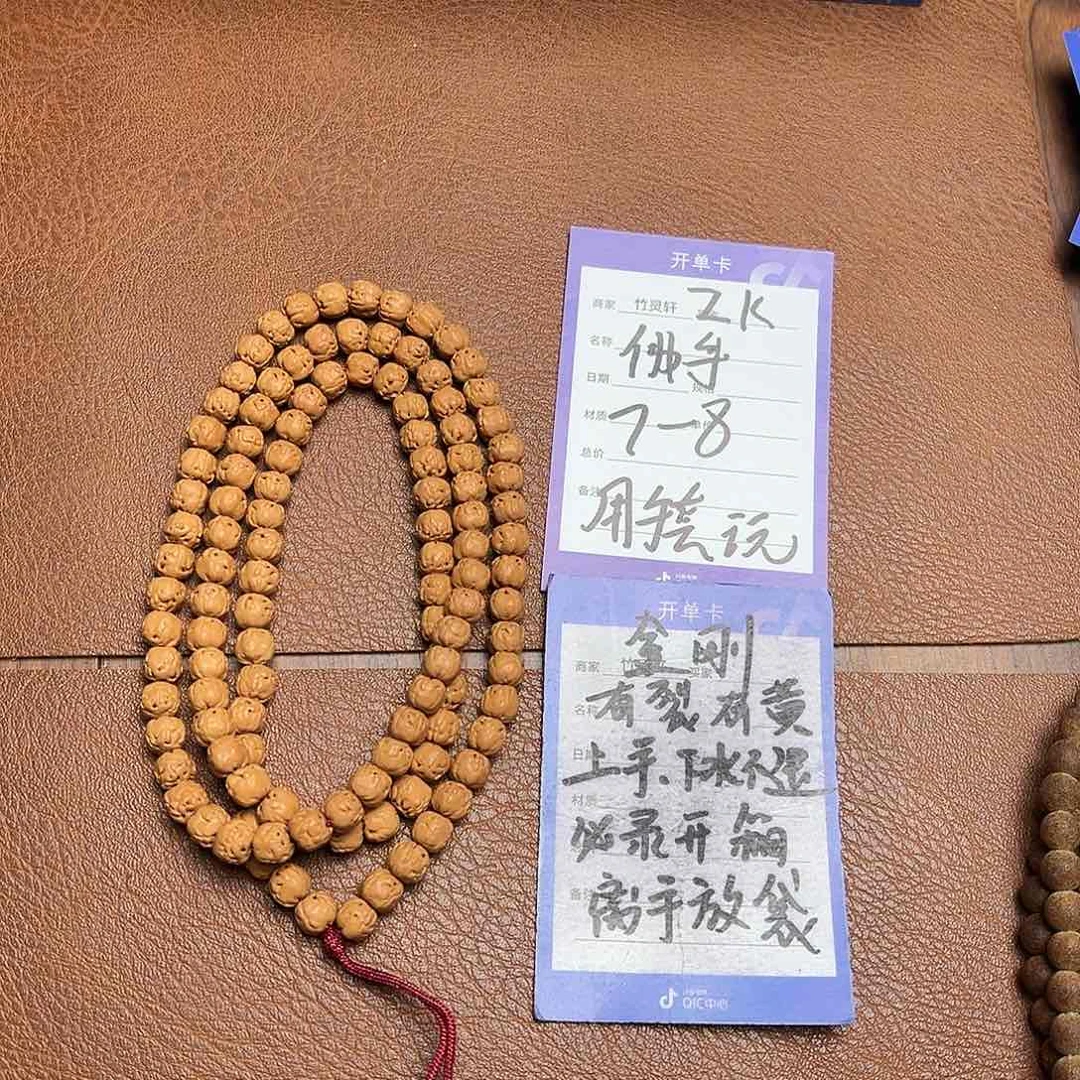 开单卡
商家 竹灵轩 ZK
名称 佛手
日期
材质 7-8
总价
备注 用手盘玩
开单卡
金刚
商家
有裂有黄
名称
上手、下水不退
材质
必录开箱
备注 离手放袋
QIC中心